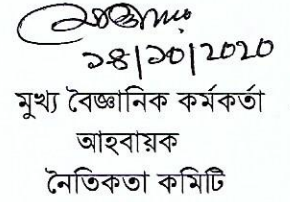 ১৪/১০/২০২০
মুখ্য বৈজ্ঞানিক কর্মকর্তা
আহবায়ক
নৈতিকতা কমিটি